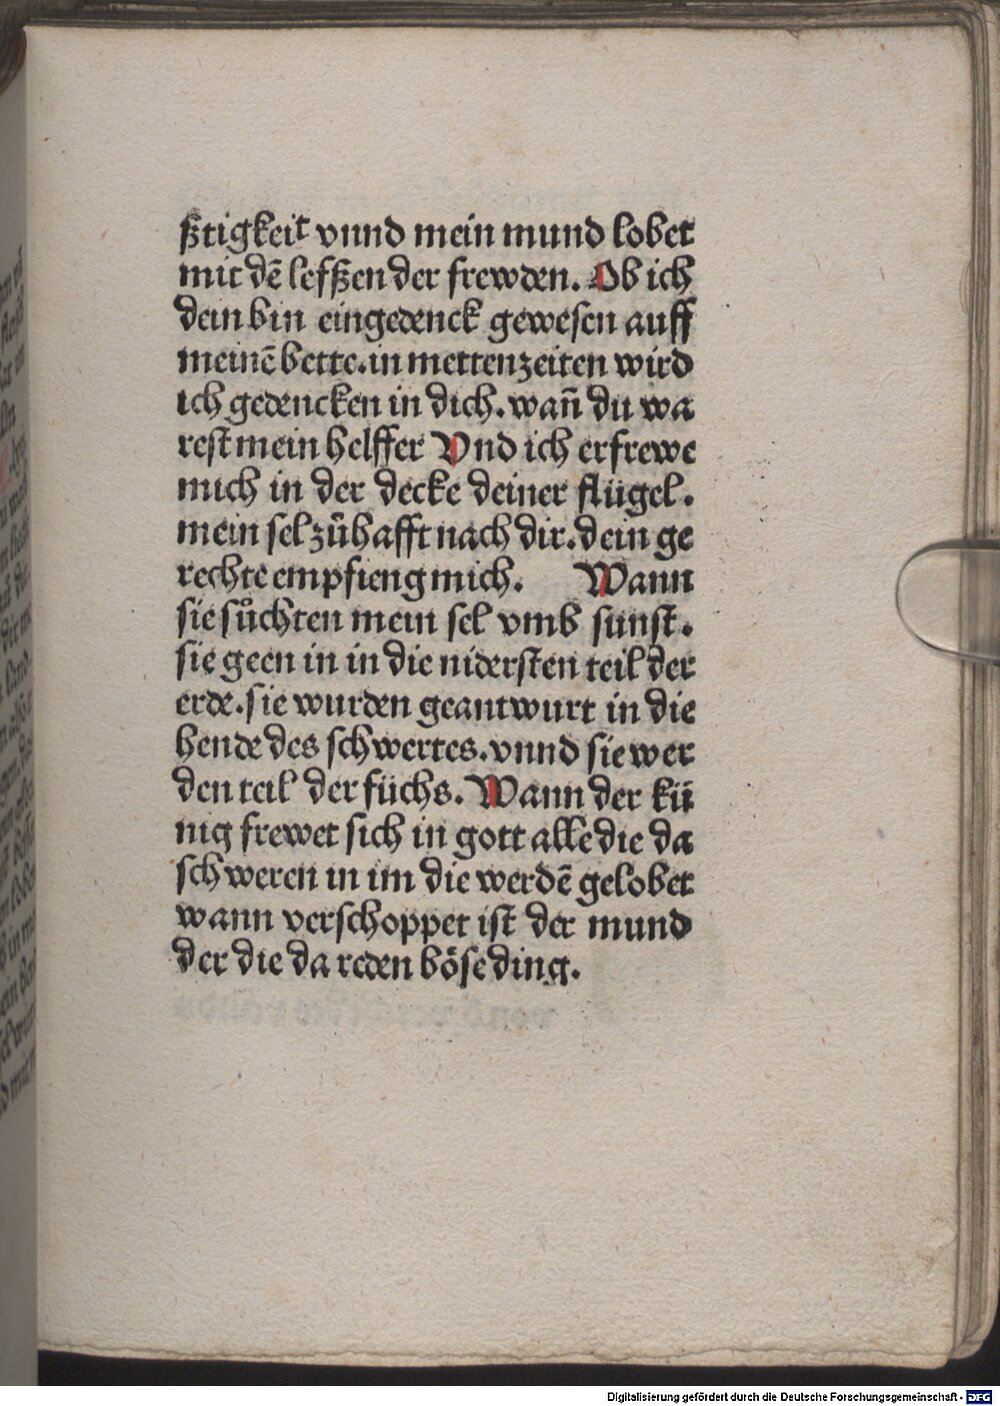 ßtigkeit vnnd mein mund lobet
mit dē lefßen der frewden. Ob ich
dein bin eingedenck gewesen auff
meinē bette. in mettenzeiten wird
ich gedencken in dich. wañ du wa
rest mein helffer Vnd ich erfrewe
mich in der decke deiner flügel.
mein sel zůhafft nach dir. dein ge
rechte empfieng mich. Wann
sie sůchten mein sel vmb sunst.
sie geen in in die nidersten teil der
erde. sie wurden geantwurt in die
hende des schwertes. vnnd sie wer
den teil der füchs. Wann der kü
nig frewet sich in gott alle die da
schweren in im die werdē gelobet
wann verschoppet ist der mund
der die da reden böse ding.
Digitalisierung gefördert durch die Deutsche Forschungsgemeinschaft - DFG